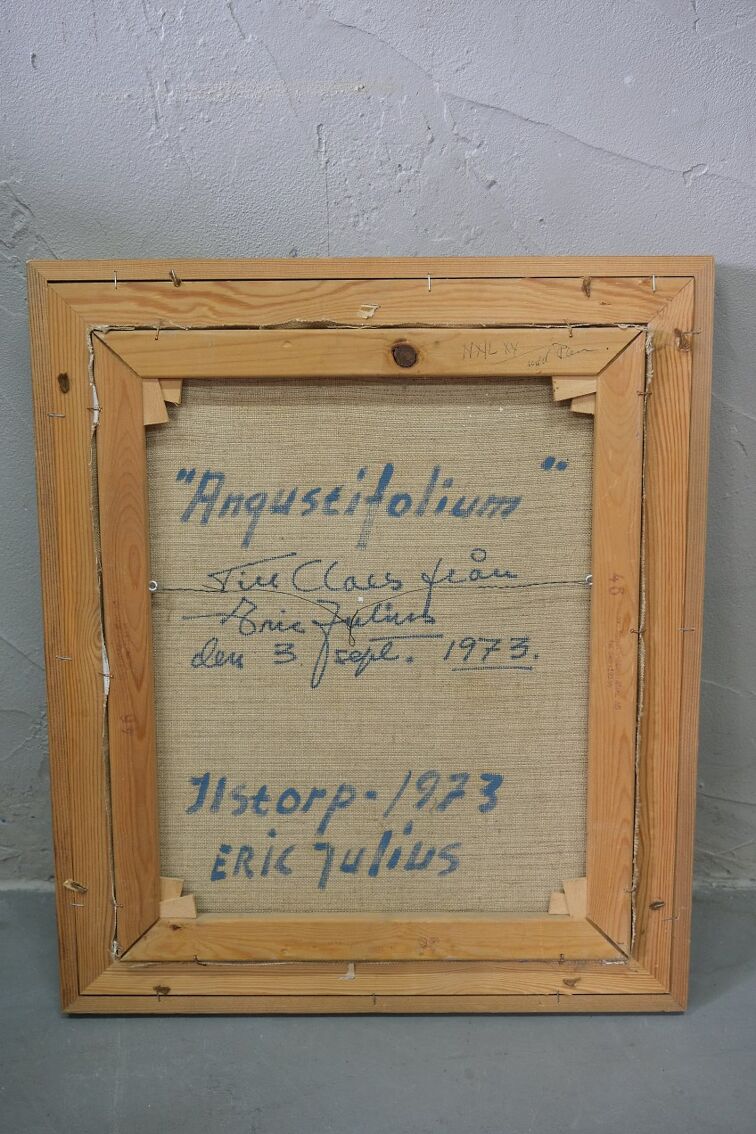 "Angustifolium"
Till Claes från
Eric Julius
den 3 sept. 1973.
Ilstorp - 1973
ERIC Julius
48